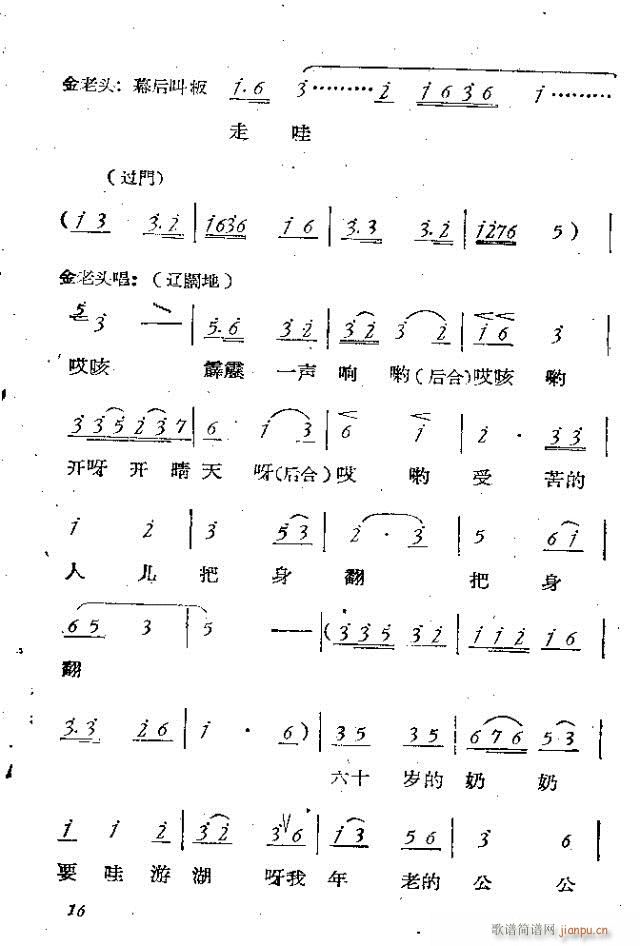 金老头：幕后叫板 1·6 3………2 1636 1………
走 哇
（过門）
（1 3 3·2 | 1636 1 6 | 3·3 3·2 | 1276 5）|
金老头唱：（辽阔地）
5 3 — | 5·6 3 2 | 3 2 3 2 | 1 6 3 |
哎咳 霹靂 一声 响 喲（后合）哎咳 喲
3 3 5 2 3 7 | 6 1 3 | 6 1 | 2 · 3 3 |
开呀 开 晴 天 呀（后合）哎 喲 受 苦的
1 2 | 3 5 3 | 2 · 3 | 5 6 1 |
人 儿 把 身 翻 把 身
6 5 3 | 5 — | （3 3 5 3 2 | 1 1 2 1 6 |
翻
3·3 2 6 | 1 · 6）| 3 5 3 5 | 6 7 6 5 3 |
六十 岁的 奶 奶
1 1 2 | 3 2 3 6 | 1 3 5 6 | 3 6 |
要 哇 游 湖 呀我 年 老的 公 公
16
歌谱简谱网
jianpu.cn